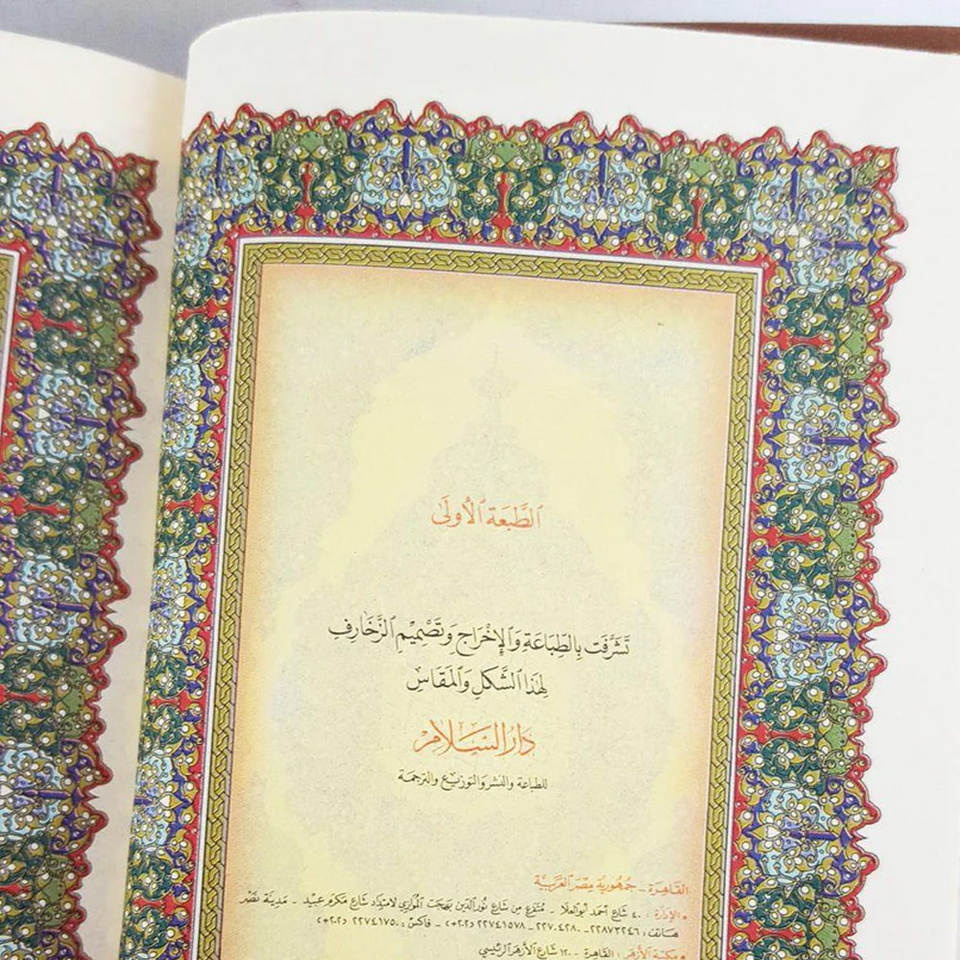 الطَّبْعَة ٱلْأُولَى
تَشَرَّفَت بِالطِّبَاعَةِ وَٱلْإِخْرَاجِ وَتَصْمِيْمِ ٱلزَّخَارِفِ
لِهَذَا ٱلشَّكْلِ وَٱلْمَقَاسِ
دَارُ السَّلَامِ
للطباعة والنشر والتوزيع والترجمة
القاهرة - جمهورية مصر العربية
• الإدارة : ٤٠ شارع أحمد أبو العلا - متفرع من شارع نور الدين بهجت الموازي لامتداد شارع مكرم عبيد - مدينة نصر
هاتف : ٢٢٨٧٣٢٤٦ - ٢٢٧٠٤٢٨٠ - ٢٢٧٤١٥٧٨ (٢٠٢+) - فاكس : ٢٢٧٤١٧٥٠ (٢٠٢+)
• مكتبة الأزهر : القاهرة - ١٢٠ شارع الأزهر الرئيسي